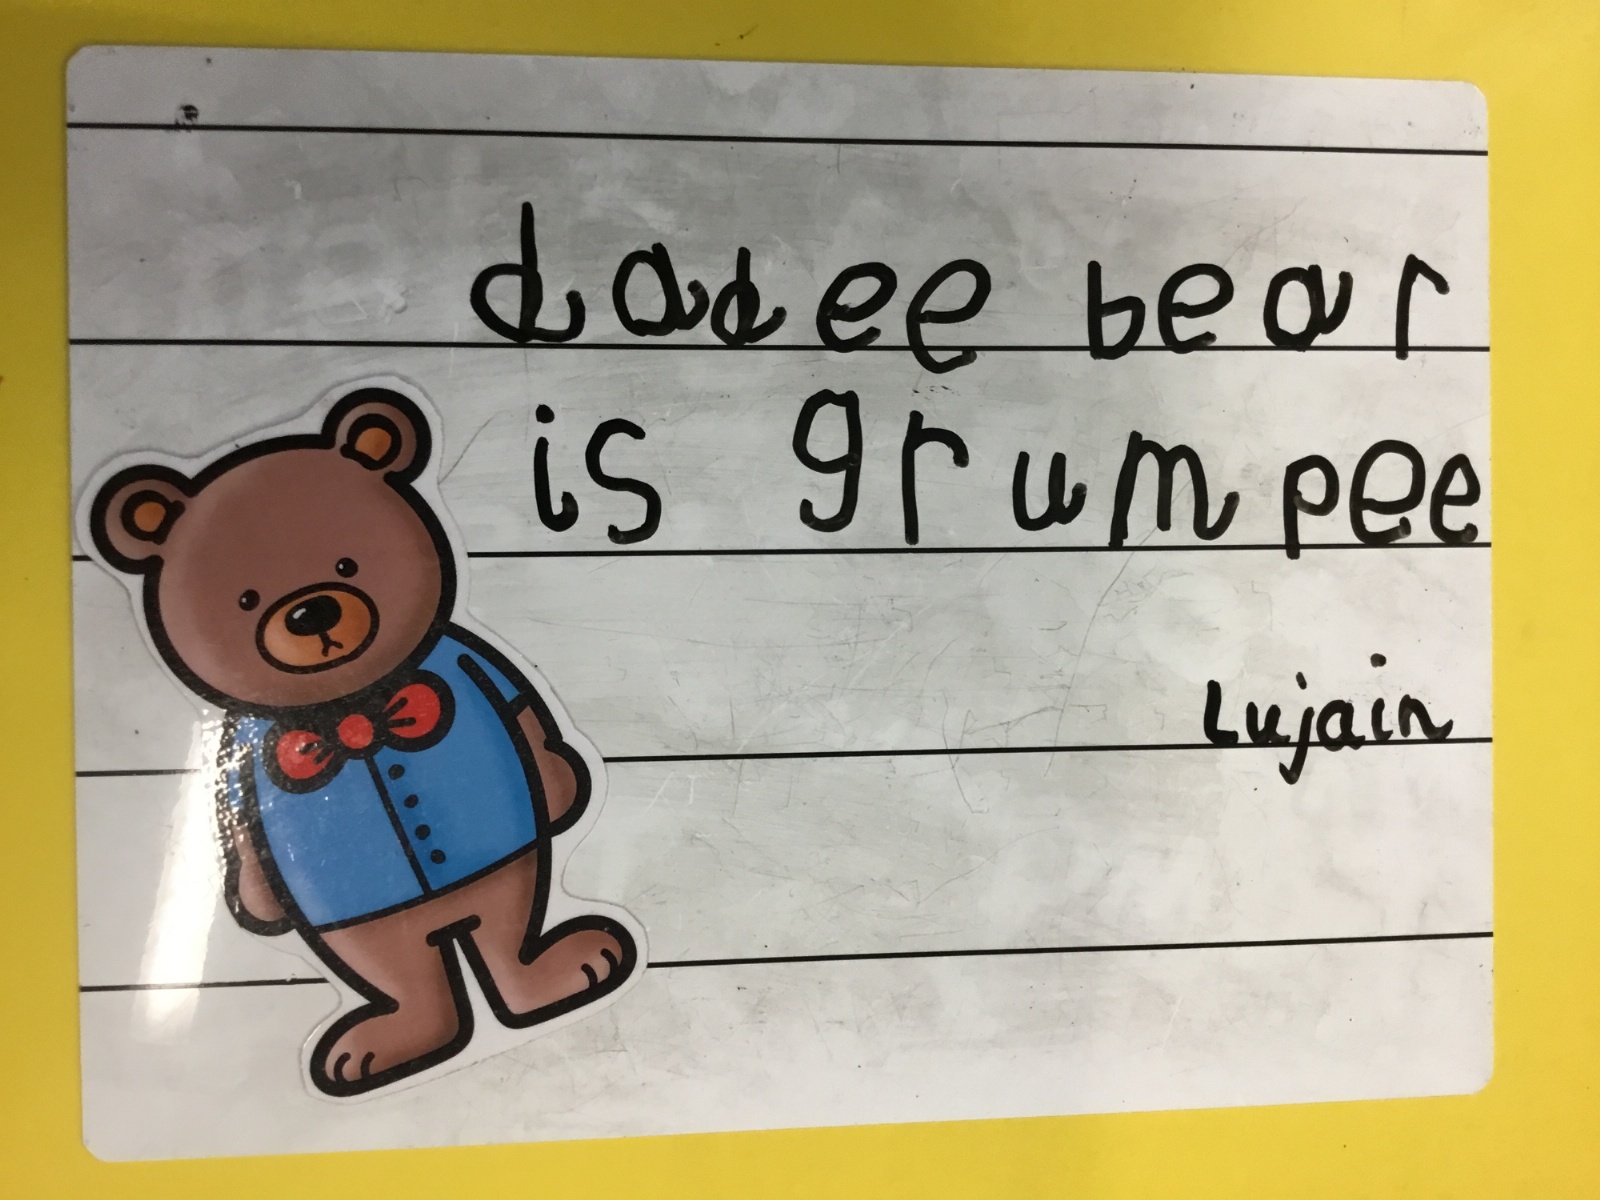 dadee bear
is grumpee
Lujain